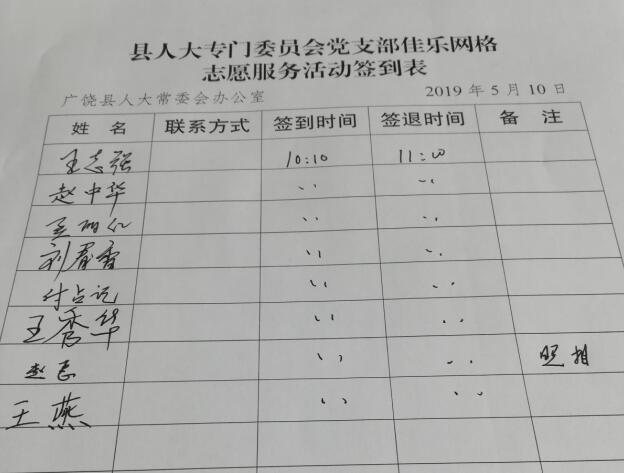 县人大专门委员会党支部佳乐网格
志愿服务活动签到表
广饶县人大常委会办公室 2019年5月10日
姓名 联系方式 签到时间 签退时间 备注
王志强 10:10 11:00
赵中华 〃 〃
〃 〃
刘春香 〃 〃
付占记 〃 〃
王秀华 〃 〃
赵 〃 〃 照相
王燕 〃 〃